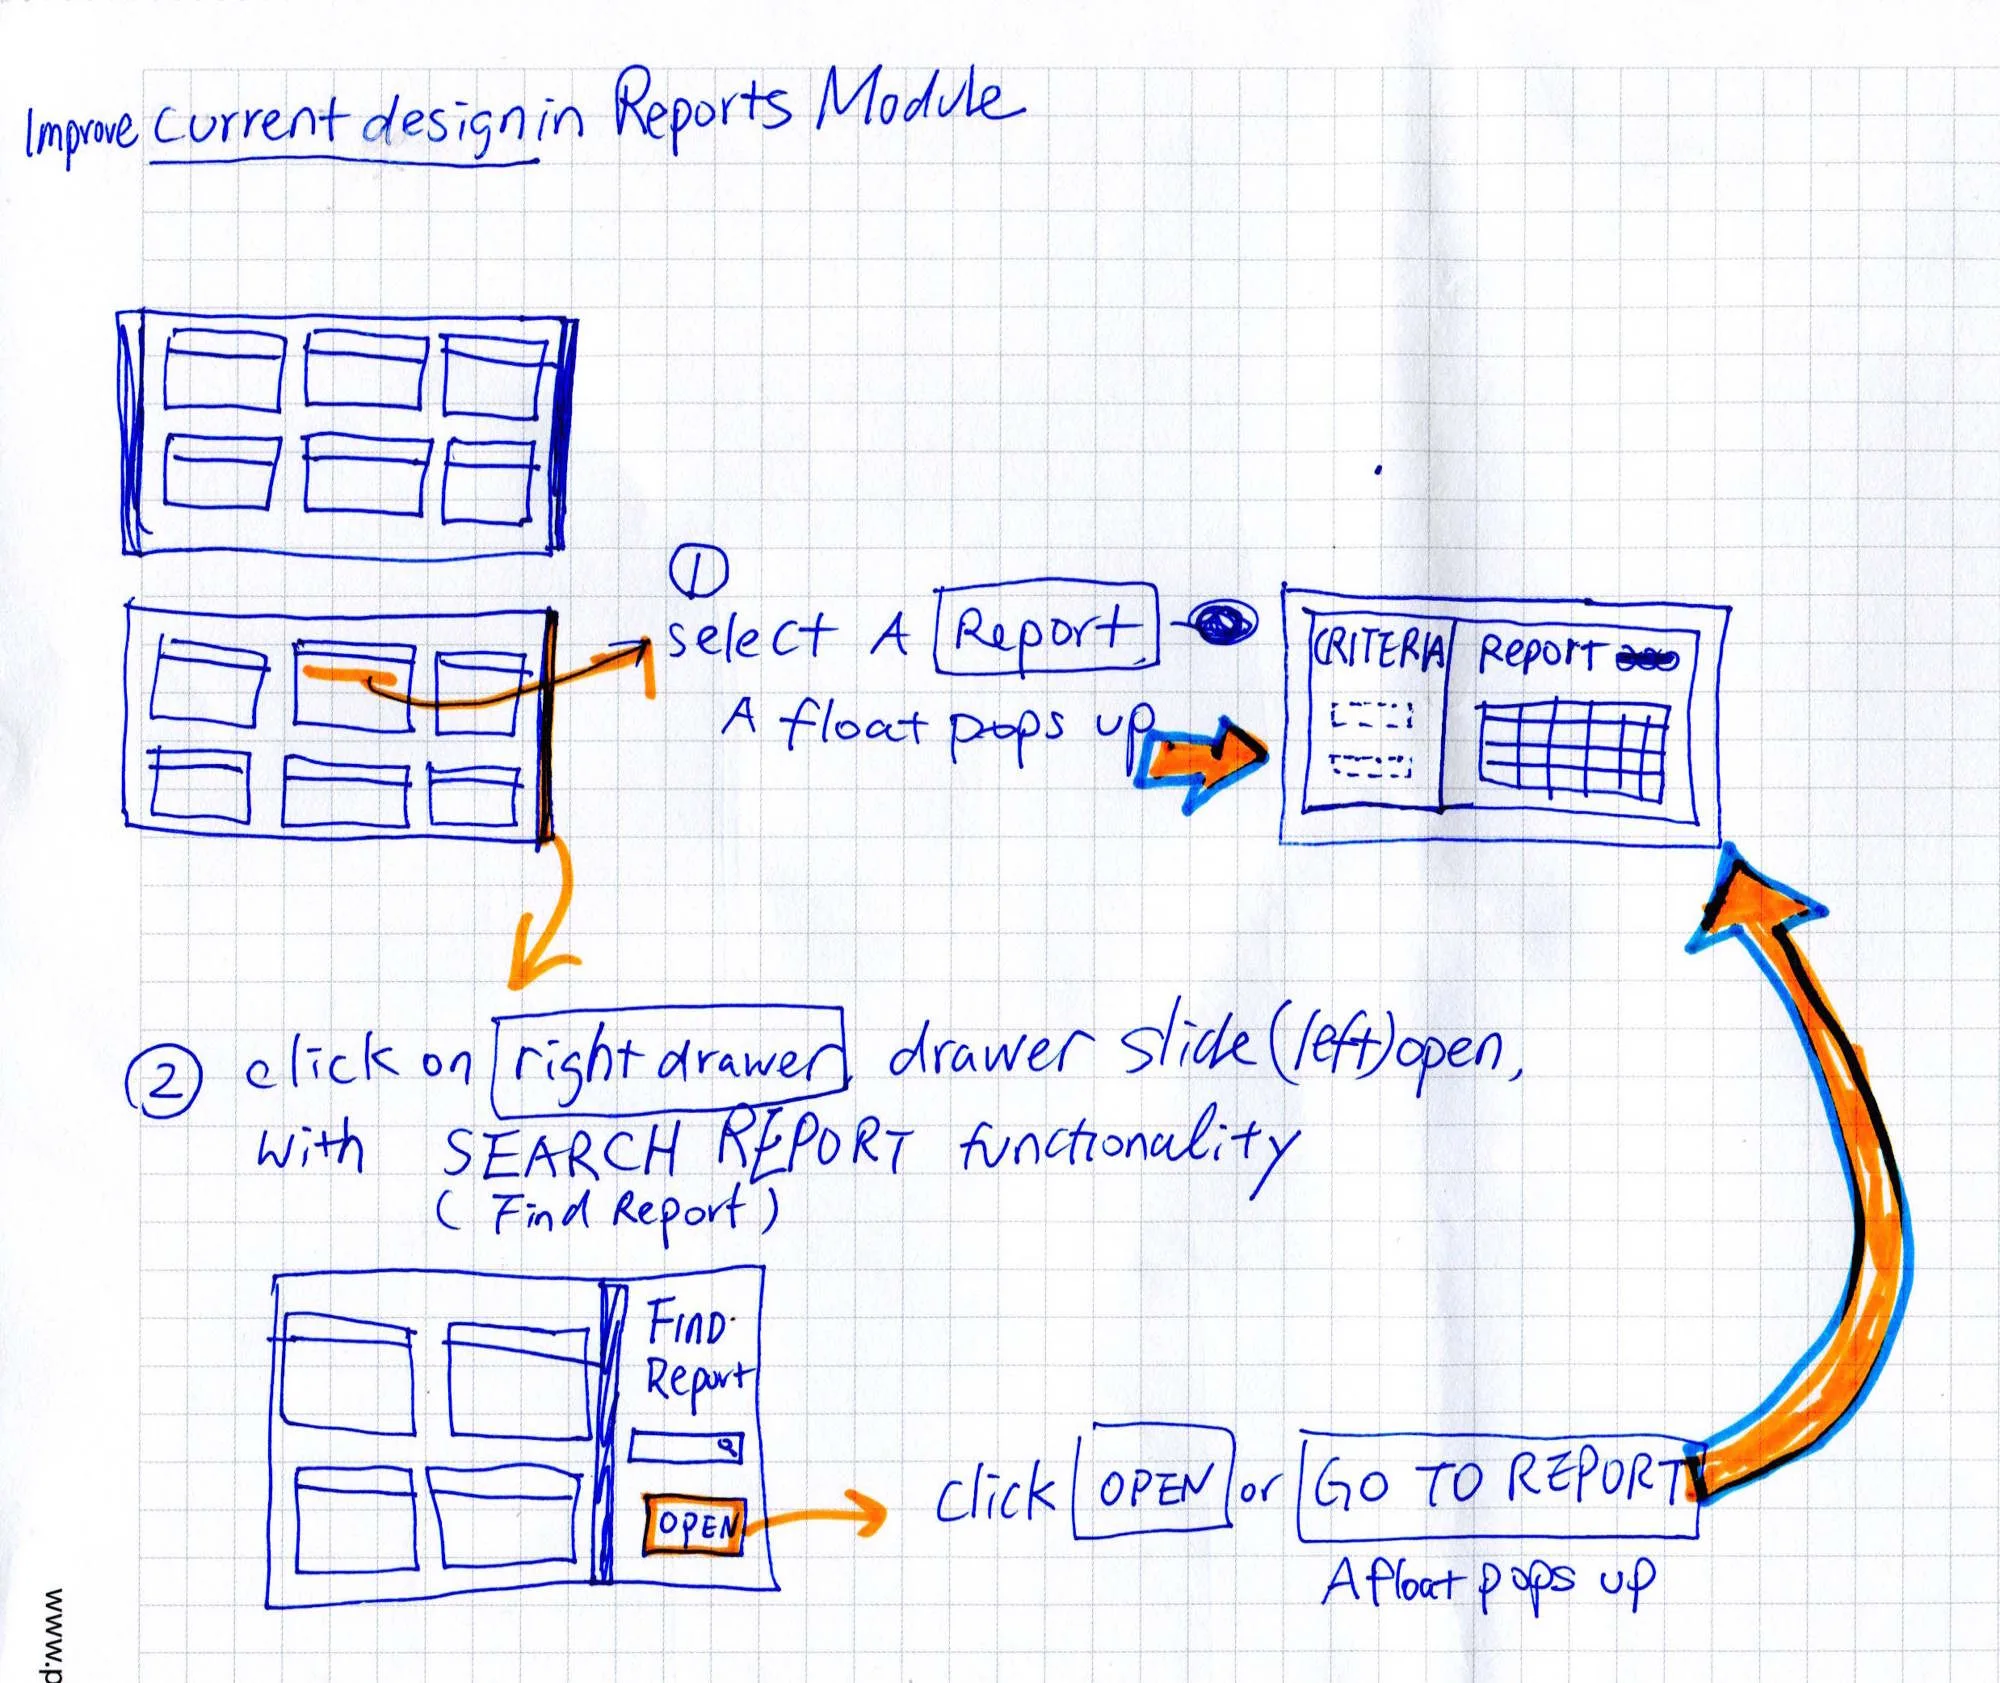 Improve current design in Reports Module
①
select A Report
A float pops up
CRITERIA Report
② click on right drawer, drawer slide (left) open,
with SEARCH REPORT functionality
(Find Report)
FIND
Report
OPEN
click OPEN or GO TO REPORT
A float pops up
www.p